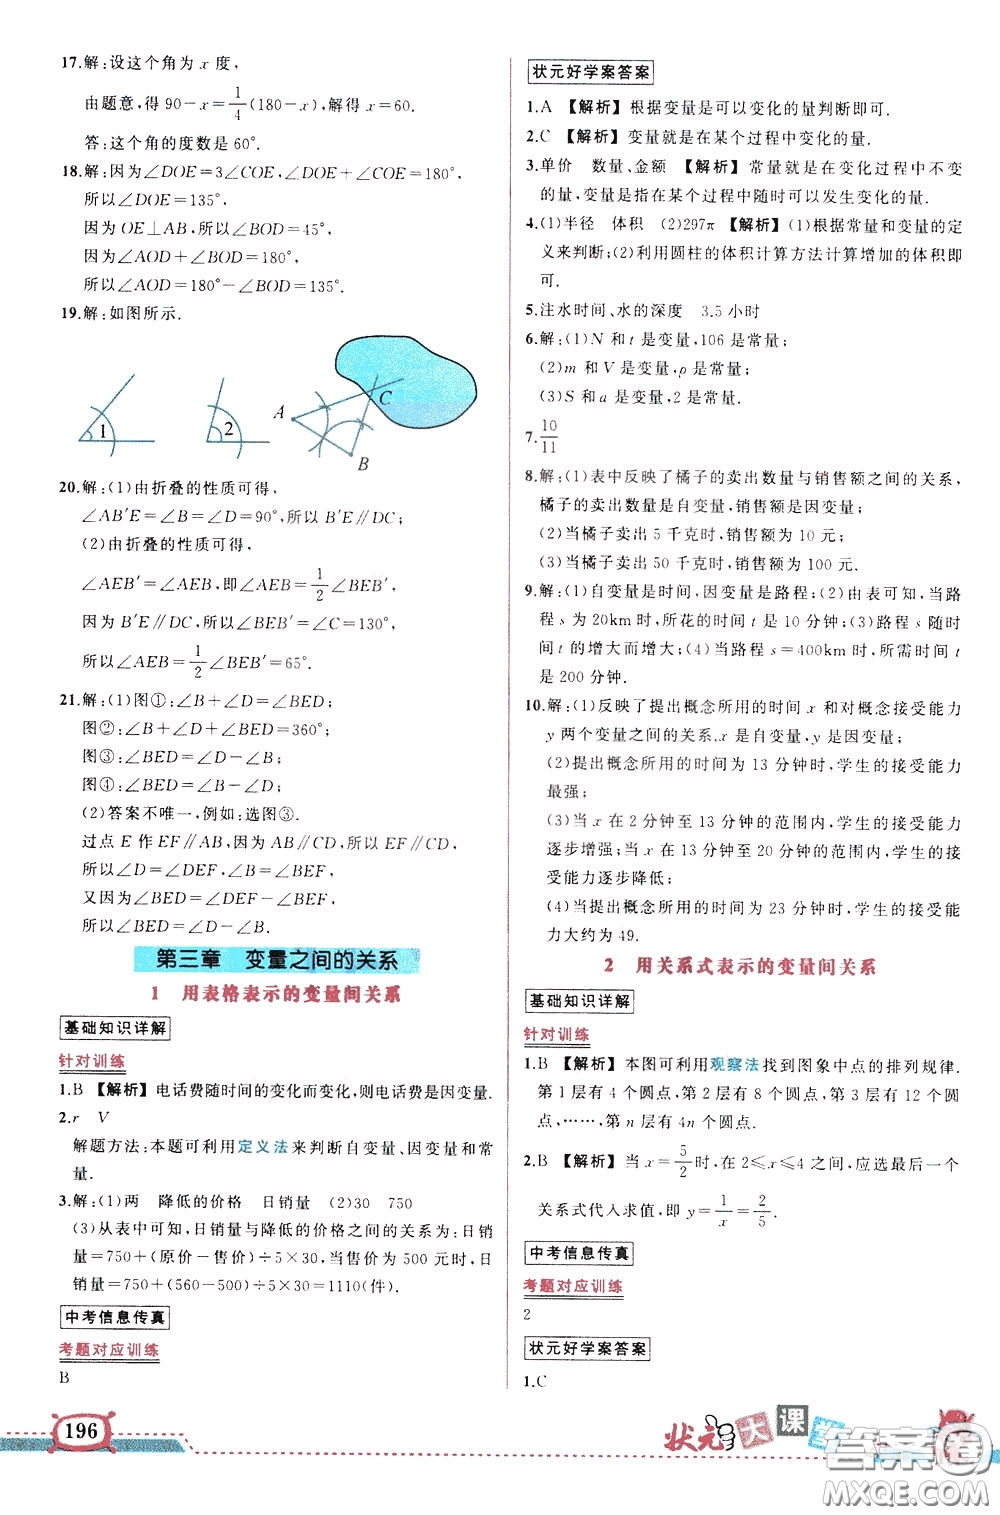 17.解:设这个角为 x 度,
由题意,得 90-x=1/4(180-x),解得 x=60.
答:这个角的度数是 60°.
18.解:因为∠DOE=3∠COE,∠DOE+∠COE=180°,
所以∠DOE=135°.
因为 OE⊥AB,所以∠BOD=45°,
因为∠AOD+∠BOD=180°,
所以∠AOD=180°-∠BOD=135°.
19.解:如图所示.
1
2
A
C
B
20.解:(1)由折叠的性质可得,
∠AB′E=∠B=∠D=90°,所以 B′E∥DC;
(2)由折叠的性质可得,
∠AEB′=∠AEB,即∠AEB=1/2∠BEB′,
因为 B′E∥DC,所以∠BEB′=∠C=130°,
所以∠AEB=1/2∠BEB′=65°.
21.解:(1)图①:∠B+∠D=∠BED;
图②:∠B+∠D+∠BED=360°;
图③:∠BED=∠D-∠B;
图④:∠BED=∠B-∠D;
(2)答案不唯一,例如:选图③.
过点 E 作 EF∥AB,因为 AB∥CD,所以 EF∥CD,
所以∠D=∠DEF,∠B=∠BEF,
又因为∠BED=∠DEF-∠BEF,
所以∠BED=∠D-∠B.
第三章 变量之间的关系
1 用表格表示的变量间关系
基础知识详解
针对训练
1.B 【解析】电话费随时间的变化而变化,则电话费是因变量.
2.r V
解题方法:本题可利用定义法来判断自变量、因变量和常
量.
3.解:(1)两 降低的价格 日销量 (2)30 750
(3)从表中可知,日销量与降低的价格之间的关系为:日销
量=750+(原价-售价)÷5×30,当售价为 500 元时,日
销量=750+(560-500)÷5×30=1110(件).
中考信息传真
考题对应训练
B
196
状元好学案答案
1.A 【解析】根据变量是可以变化的量判断即可.
2.C 【解析】变量就是在某个过程中变化的量.
3.单价 数量、金额 【解析】常量就是在变化过程中不变
的量,变量是指在某个过程中随时可以发生变化的量.
4.(1)半径 体积 (2)297π 【解析】(1)根据常量和变量的定
义来判断;(2)利用圆柱的体积计算方法计算增加的体积即
可.
5.注水时间、水的深度 3.5 小时
6.解:(1)N 和 t 是变量,106 是常量;
(2)m 和 V 是变量,ρ 是常量;
(3)S 和 a 是变量,2 是常量.
7.10/11
8.解:(1)表中反映了橘子的卖出数量与销售额之间的关系,
橘子的卖出数量是自变量,销售额是因变量;
(2)当橘子卖出 5 千克时,销售额为 10 元;
(3)当橘子卖出 50 千克时,销售额为 100 元.
9.解:(1)自变量是时间,因变量是路程;(2)由表可知,当路
程 s 为 20km 时,所花的时间 t 是 10 分钟;(3)路程 s 随时间
t 的增大而增大;(4)当路程 s=400km 时,所需时间 t
是 200 分钟.
10.解:(1)反映了提出概念所用的时间 x 和对概念接受能力
y 两个变量之间的关系.x 是自变量,y 是因变量;
(2)提出概念所用的时间为 13 分钟时,学生的接受能力
最强;
(3)当 x 在 2 分钟至 13 分钟的范围内,学生的接受能力
逐步增强;当 x 在 13 分钟至 20 分钟的范围内,学生的接
受能力逐步降低;
(4)当提出概念所用的时间为 23 分钟时,学生的接受能
力大约为 49.
2 用关系式表示的变量间关系
基础知识详解
针对训练
1.B 【解析】本图可利用观察法找到图象中点的排列规律.
第 1 层有 4 个圆点,第 2 层有 8 个圆点,第 3 层有 12 个圆
点,……,第 n 层有 4n 个圆点.
2.B 【解析】当 x=5/2时,在 2≤x≤4 之间,应选最后一个
关系式代入求值,即 y=1/x=2/5.
中考信息传真
考题对应训练
2
状元好学案答案
1.C
状元大课堂
答案圈
MXQE.COM